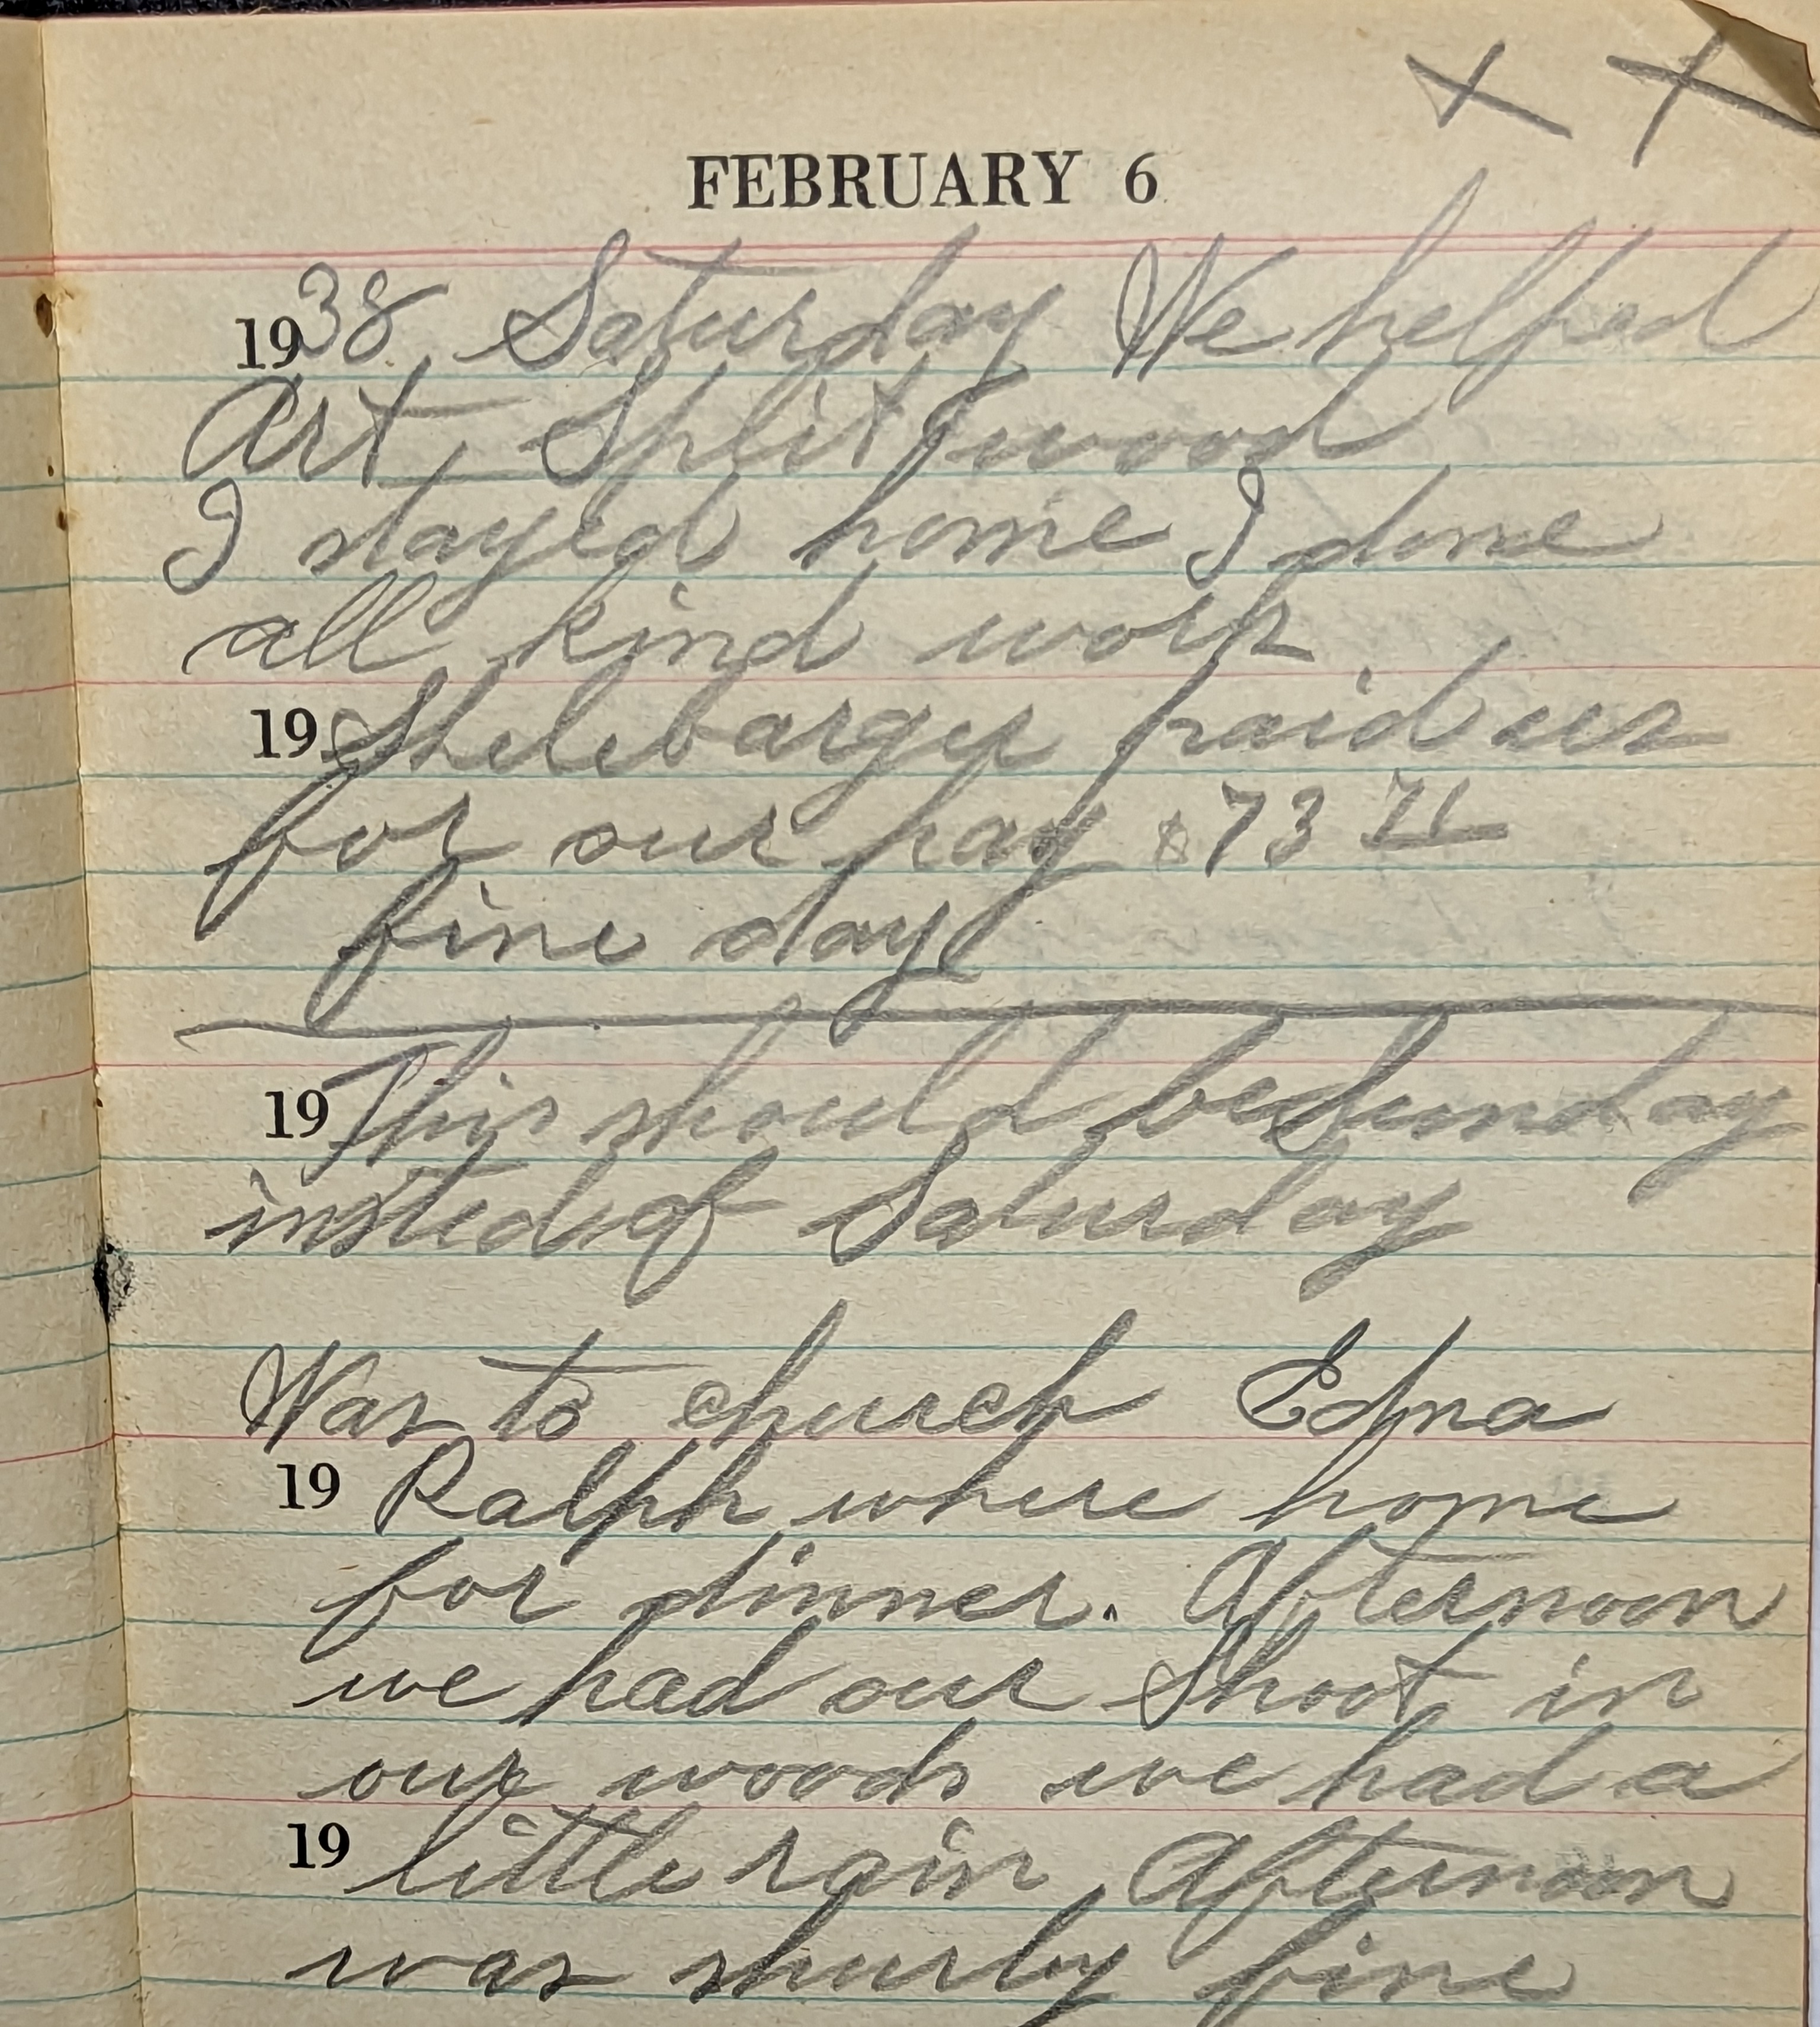 x x
FEBRUARY 6
1938 Saturday We helped
Art Split wood
I stayed home I done
all kind work
19 Shelebarger paid us
for our hay $73 71
fine day
19 This should be Sunday
insted of Saturday
Was to church Edna
19 Ralph where home
for dinner. Afternoon
we had our Shoot in
our woods we had a
19 little rain Afternoon
was shurly fine